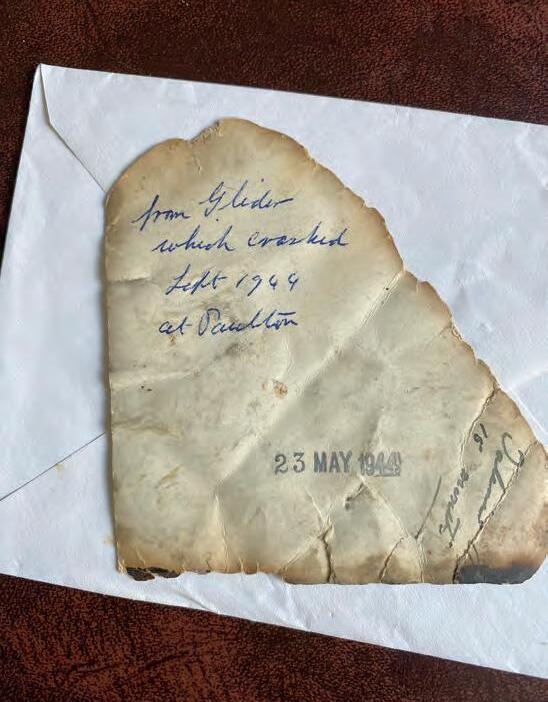 from Glider
which crashed
Sept 1944
at Paulton
23 MAY 1944